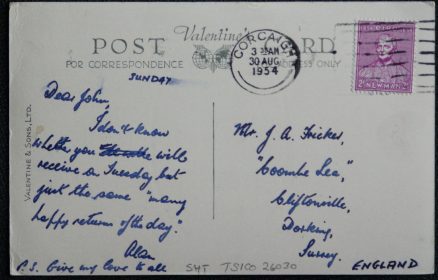 Valentine's
POST CARD
FOR CORRESPONDENCE
ADDRESS ONLY
CORCAIGH
3 AM
30 AUG
1954
NEWMAN
VALENTINE & SONS, LTD.
SUNDAY
Dear John,
I don't know
whether you will
receive on Tuesday but
just the same "many
happy returns of the day."
Alan
P.S. Give my love to all
Mr. J. A. Fricker,
"Coombe Lea,"
Cliftonville,
Dorking,
Surrey.
ENGLAND
SYT TS1CO 26030